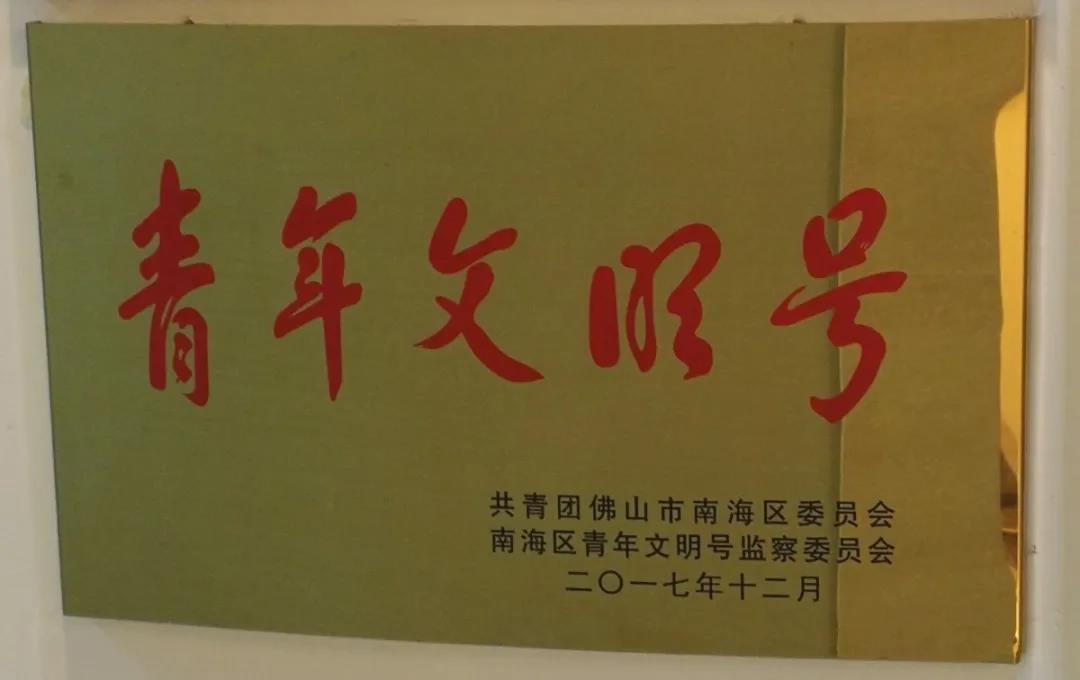 青年文明号
共青团佛山市南海区委员会
南海区青年文明号监察委员会
二〇一七年十二月